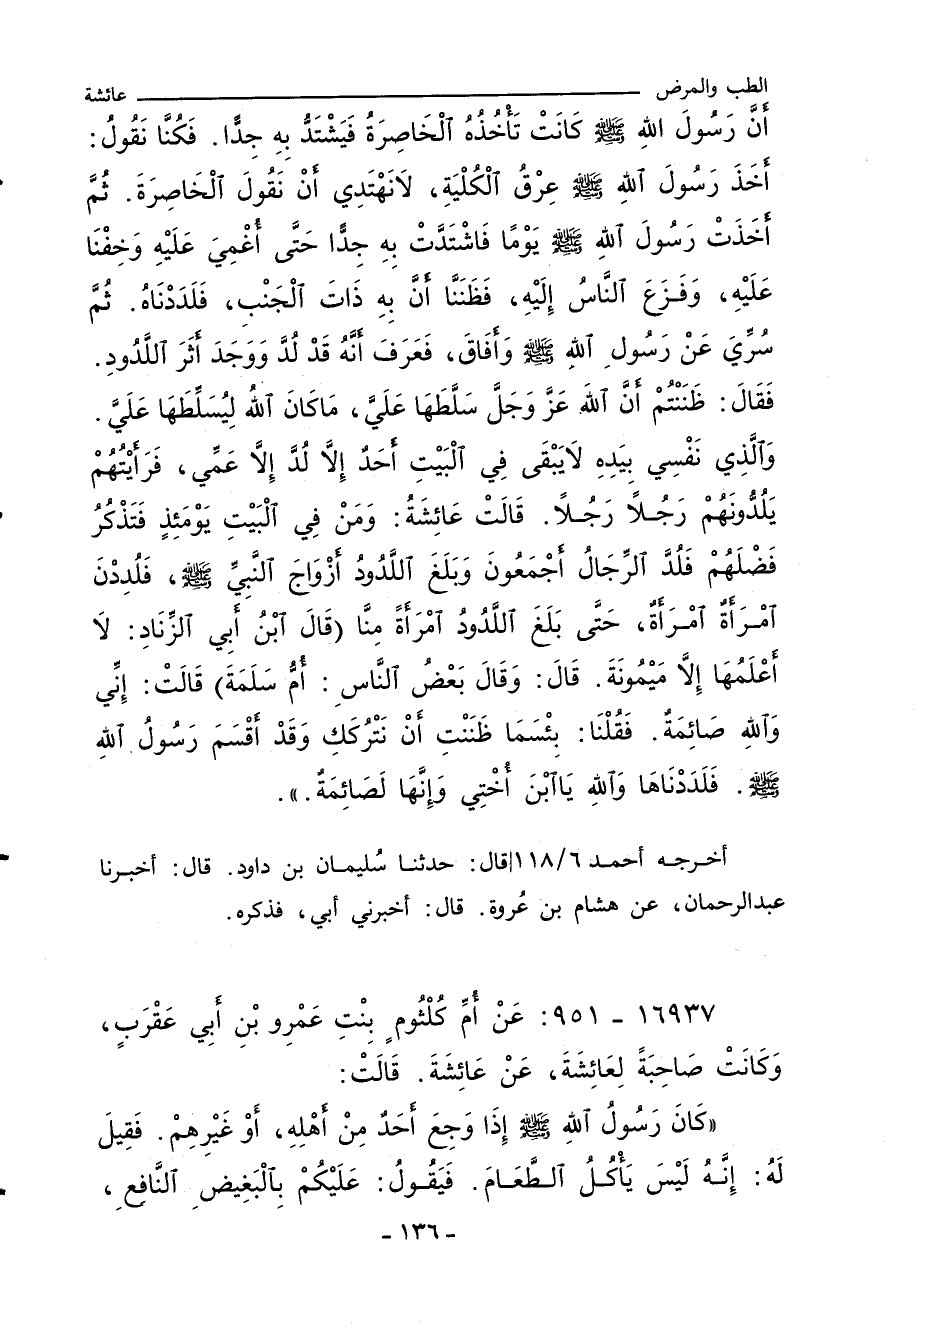 الطب والمرض ــــــــــــــــــــــــ عائشة
أَنَّ رَسُولَ اللهِ ﷺ كَانَتْ تَأْخُذُهُ ٱلْخَاصِرَةُ فَيَشْتَدُّ بِهِ جِدًّا. فَكُنَّا نَقُولُ:
أَخَذَ رَسُولَ ٱللهِ ﷺ عِرْقُ ٱلْكُلْيَةِ، لَانَهْتَدِي أَنْ نَقُولَ ٱلْخَاصِرَةَ. ثُمَّ
أَخَذَتْ رَسُولَ ٱللهِ ﷺ يَوْمًا فَاشْتَدَّتْ بِهِ جِدًّا حَتَّى أُغْمِيَ عَلَيْهِ وَخِفْنَا
عَلَيْهِ، وَفَزَعَ ٱلنَّاسُ إِلَيْهِ، فَظَنَنَّا أَنَّ بِهِ ذَاتَ ٱلْجَنْبِ، فَلَدَدْنَاهُ. ثُمَّ
سُرِّيَ عَنْ رَسُولِ ٱللهِ ﷺ وَأَفَاقَ، فَعَرَفَ أَنَّهُ قَدْ لُدَّ وَوَجَدَ أَثَرَ اللَّدُودِ.
فَقَالَ: ظَنَنْتُمْ أَنَّ ٱللهَ عَزَّ وَجَلَّ سَلَّطَهَا عَلَيَّ، مَاكَانَ ٱللهُ لِيُسَلِّطَهَا عَلَيَّ.
وَٱلَّذِي نَفْسِي بِيَدِهِ لَايَبْقَى فِي ٱلْبَيْتِ أَحَدٌ إِلَّا لُدَّ إِلَّا عَمِّي، فَرَأَيْتُهُمْ
يَلُدُّونَهُمْ رَجُلًا رَجُلًا. قَالَتْ عَائِشَةُ: وَمَنْ فِي ٱلْبَيْتِ يَوْمَئِذٍ فَتَذْكُرُ
فَضْلَهُمْ فَلُدَّ ٱلرِّجَالُ أَجْمَعُونَ وَبَلَغَ اللَّدُودُ أَزْوَاجَ ٱلنَّبِيِّ ﷺ، فَلُدِدْنَ
ٱمْرَأَةٌ ٱمْرَأَةٌ، حَتَّى بَلَغَ اللَّدُودُ ٱمْرَأَةً مِنَّا (قَالَ ٱبْنُ أَبِي ٱلزِّنَادِ: لَا
أَعْلَمُهَا إِلَّا مَيْمُونَةَ. قَالَ: وَقَالَ بَعْضُ ٱلنَّاسِ: أُمُّ سَلَمَةَ) قَالَتْ: إِنِّي
وَٱللهِ صَائِمَةٌ. فَقُلْنَا: بِئْسَمَا ظَنَنْتِ أَنْ نَتْرُكَكِ وَقَدْ أَقْسَمَ رَسُولُ ٱللهِ
ﷺ. فَلَدَدْنَاهَا وَٱللهِ يَاٱبْنَ أُخْتِي وَإِنَّهَا لَصَائِمَةٌ.».
أخرجه أحمد ١١٨/٦|قال: حدثنا سُليمان بن داود. قال: أخبرنا
عبدالرحمان، عن هشام بن عُروة. قال: أخبرني أبي، فذكره.
١٦٩٣٧ ـ ٩٥١: عَنْ أُمِّ كُلْثُومٍ بِنْتِ عَمْرِو بْنِ أَبِي عَقْرَبٍ،
وَكَانَتْ صَاحِبَةً لِعَائِشَةَ، عَنْ عَائِشَةَ. قَالَتْ:
«كَانَ رَسُولُ ٱللهِ ﷺ إِذَا وَجِعَ أَحَدٌ مِنْ أَهْلِهِ، أَوْ غَيْرِهِمْ. فَقِيلَ
لَهُ: إِنَّهُ لَيْسَ يَأْكُلُ ٱلطَّعَامَ. فَيَقُولُ: عَلَيْكُمْ بِٱلْبَغِيضِ ٱلنَّافِعِ،
ـ ١٣٦ ـ